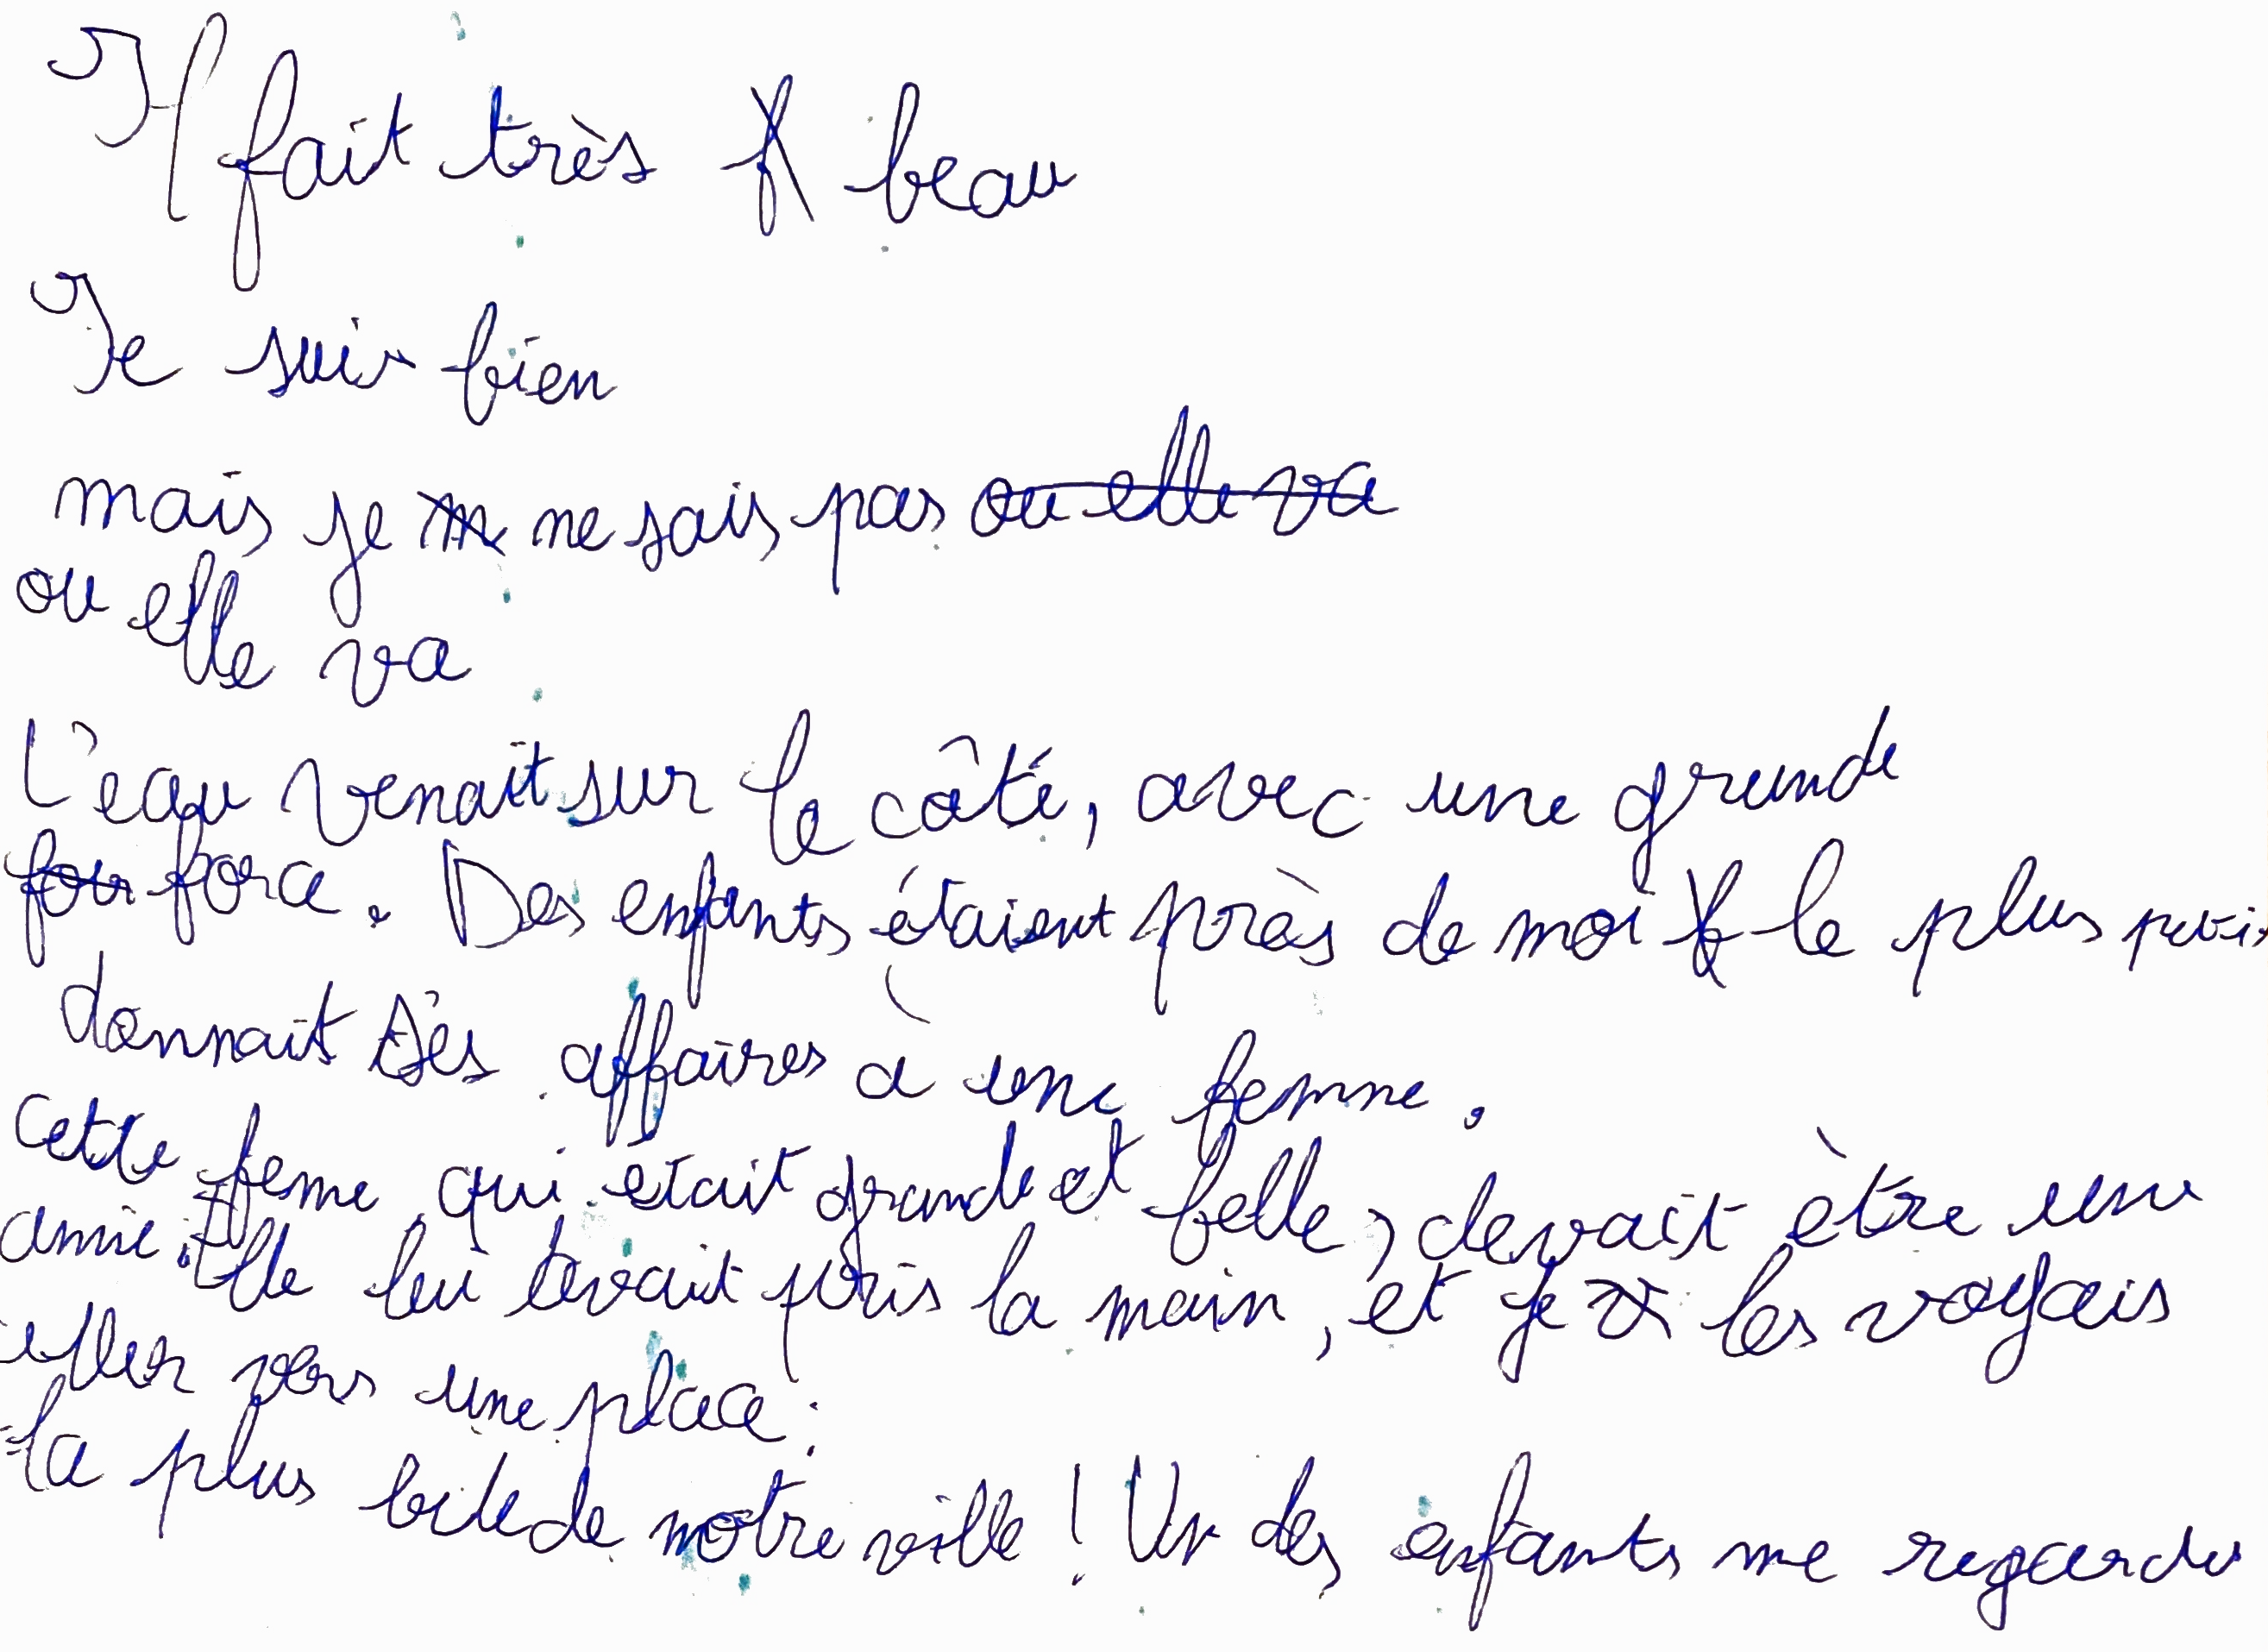 Il fait très beau
Je suis bien
mais je ne sais pas ou elle va
ou elle va
L'eau venait sur le côté, avec une grande
force. Des enfants étaient près de moi le plus
donnait ses affaires à une femme.
cette femme qui etait grande et belle, devait être une
amie. Elle lui pris la main, et je les voyais
aller vers une place :
la plus belle de notre ville ! Un des enfants me regarde